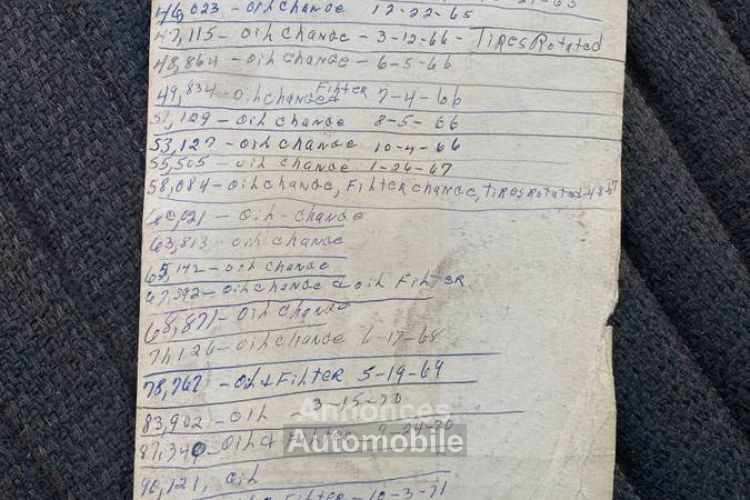 46,023 - oil change 12-22-65
47,115 - oil change - 3-12-66 - Tires Rotated
48,864 - oil change - 6-5-66
49,834 - oil changed Filter 7-4-66
51,129 - oil change 8-5-66
53,127 - oil change 10-4-66
55,505 - oil change 1-26-67
58,084 - oil change, Filter change, Tires Rotated - 4-8-67
60,021 - oil - change
63,813 oil change
65,142 - oil change
67,392 - oil change & oil Filter
68,871 - oil change
71,126 - oil change 6-17-68
78,767 - oil & Filter 5-19-69
83,902 - oil 3-15-70
87,340 - oil & Filter 9-24-70
90,121, oil
& Filter - 10-3-71
Annonces
Automobile